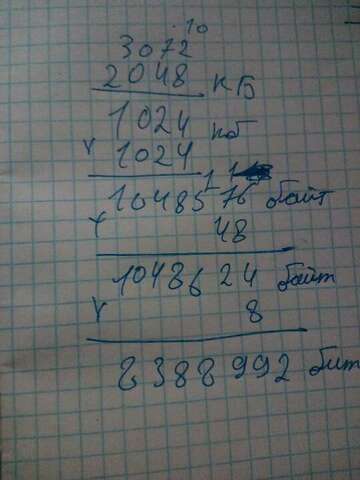 10
3072
2048 КБ
1024 кб
× 1024
11
1048576 байт
× 48
1048624 байт
× 8
8388992 бит